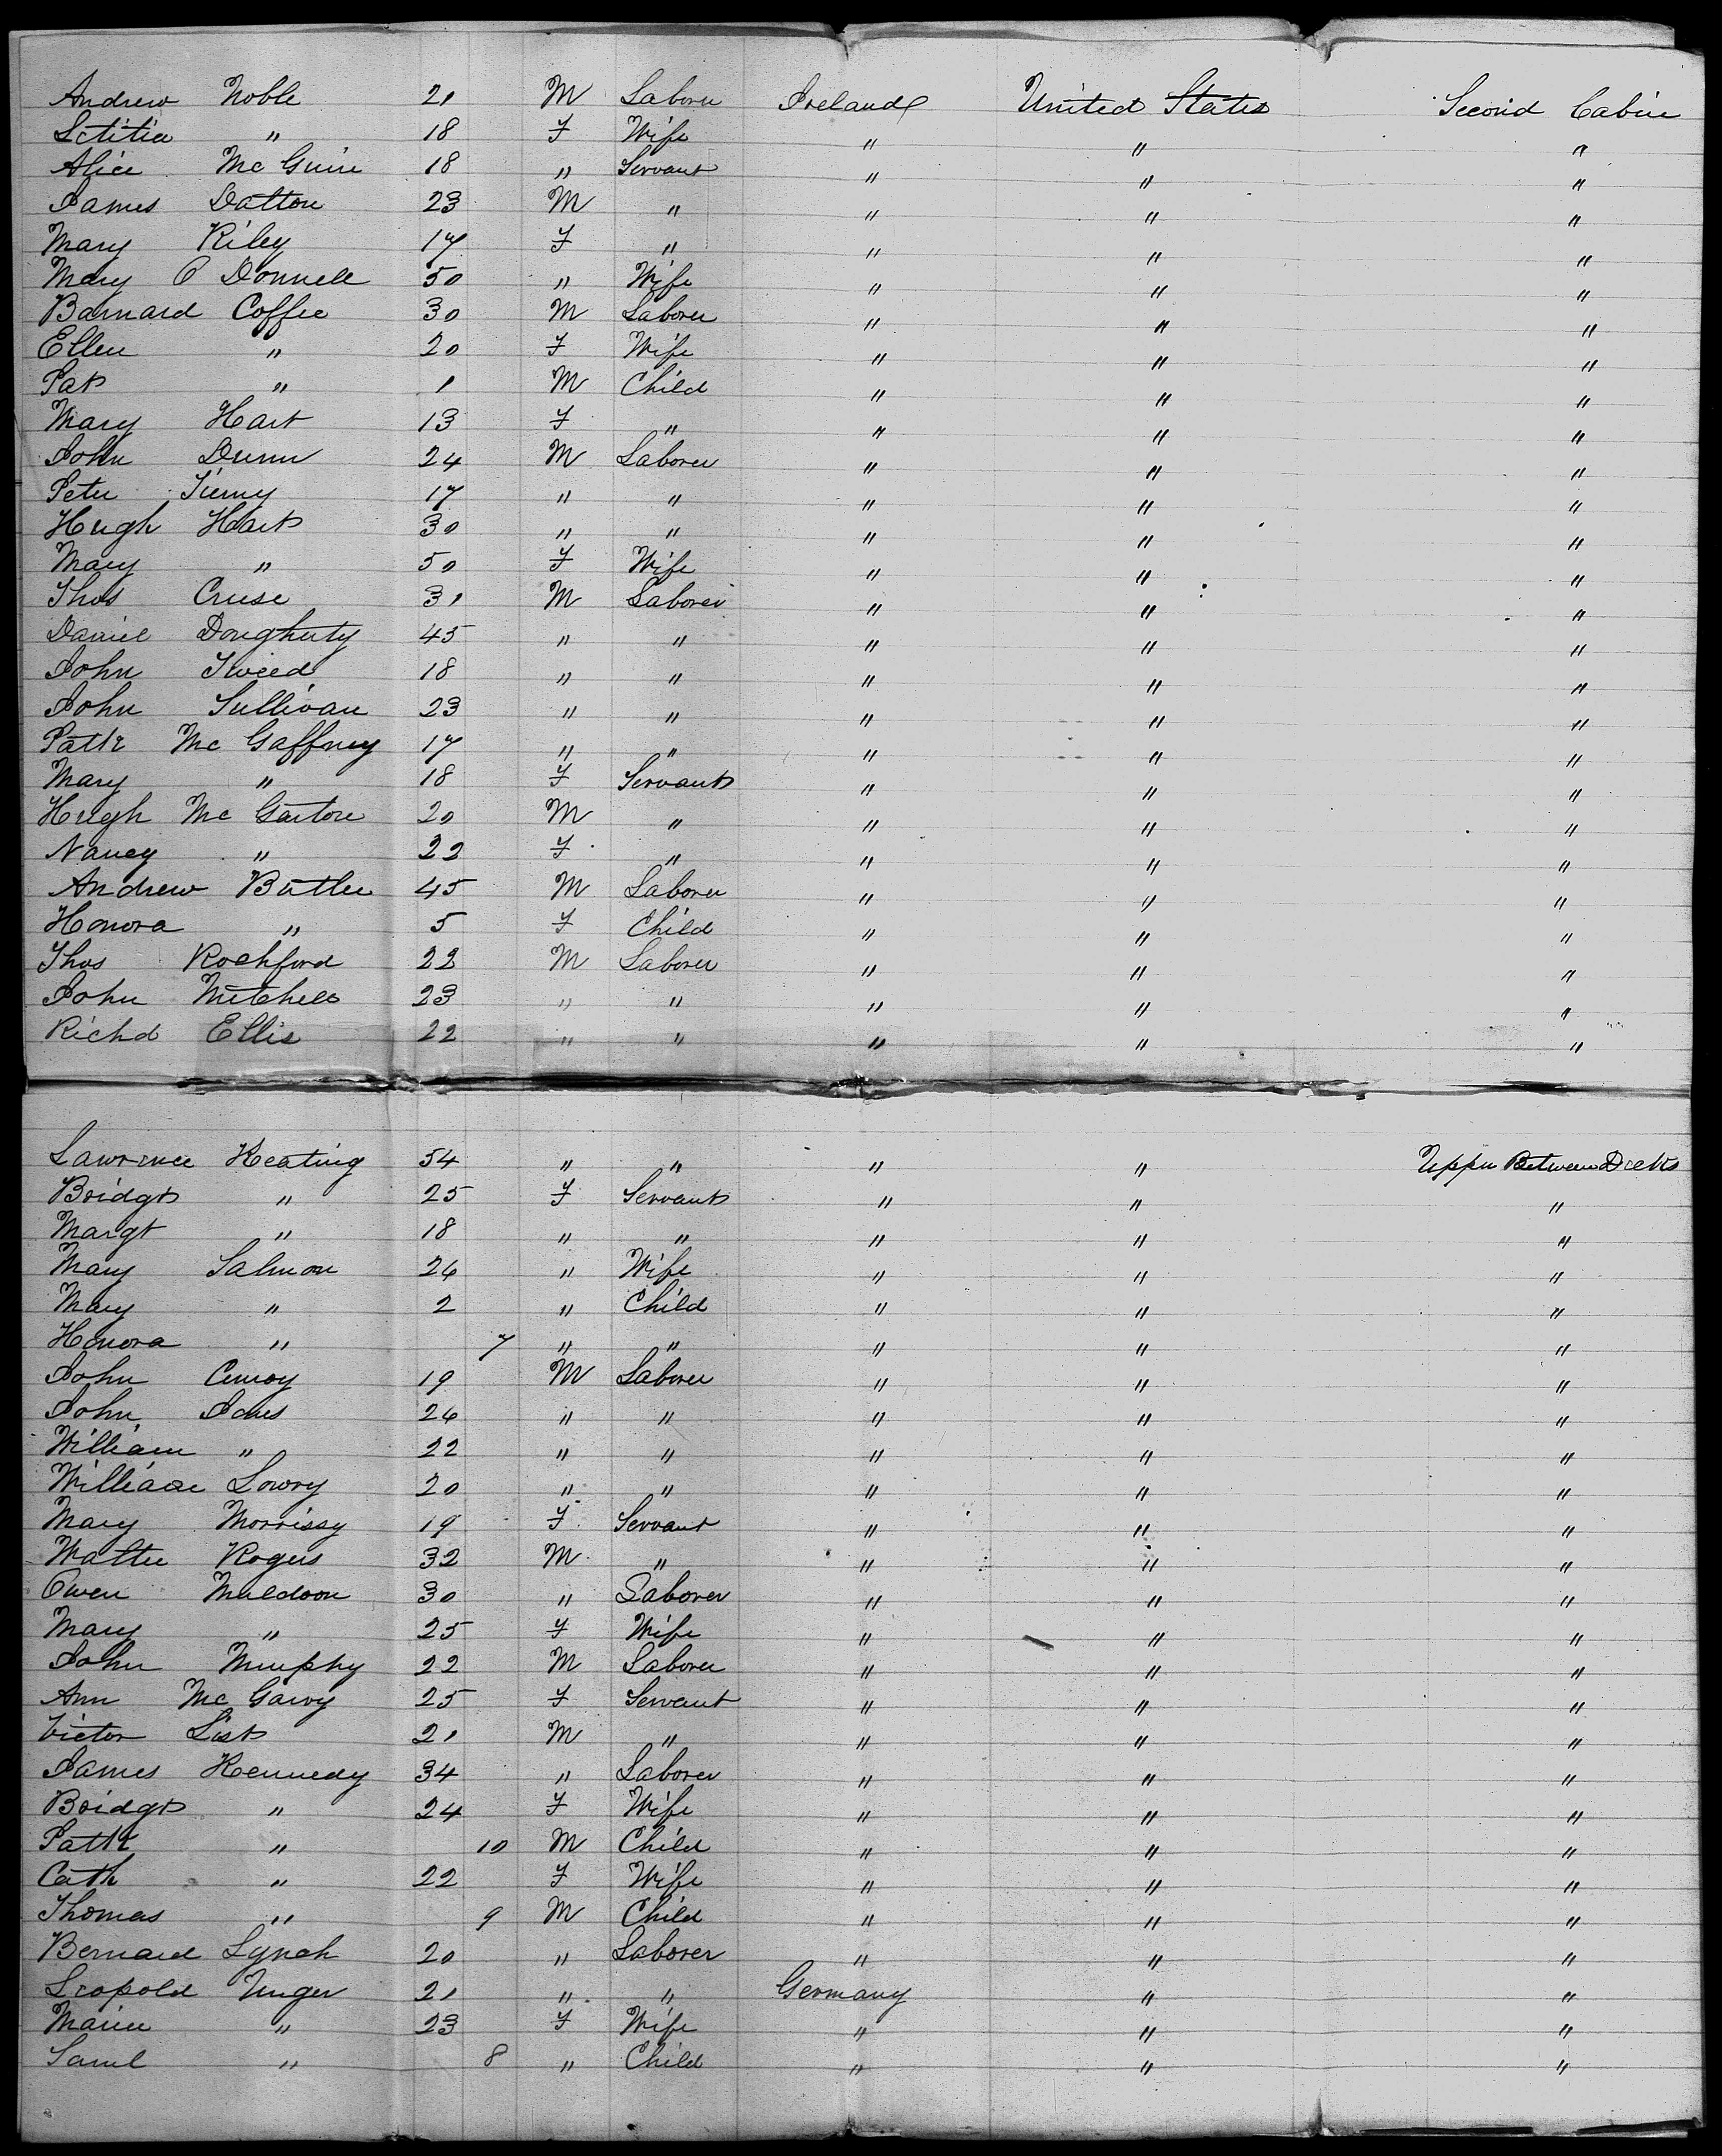 Andrew Noble 21 M Laborer Ireland United States Second Cabin
Letitia " 18 F Wife " " "
Alice McGuire 18 " Servant " " "
James Dalton 23 M " " " "
Mary Riley 17 F " " " "
Mary O Donnell 50 " Wife " " "
Barnard Coffee 30 M Laborer " " "
Ellen " 20 F Wife " " "
Pat " 1 M Child " " "
Mary Hart 13 F " " " "
John Dunn 24 M Laborer " " "
Peter Tierny 17 " " " " "
Hugh Hart 30 " " " " "
Mary " 50 F Wife " " "
Thos Cruse 31 M Laborer " " "
Daniel Dougherty 45 " " " " "
John Tweed 18 " " " " "
John Sullivan 23 " " " " "
Patk McGaffney 17 " " " " "
Mary " 18 F Servant " " "
Hugh McGarton 20 M " " " "
Nancy " 22 F " " " "
Andrew Butler 45 M Laborer " " "
Honora " 5 F Child " " "
Thos Rochford 22 M Laborer " " "
John Mitchell 23 " " " " "
Richd Ellis 22 " " " " "
Lawrence Keating 54 " " " " Upper Between Decks
Bridgt " 25 F Servant " " "
Margt " 18 " " " " "
Mary Salmon 26 " Wife " " "
Mary " 2 " Child " " "
Honora " 7 " " " " "
John 19 M Laborer " " "
John 26 " " " " "
William " 22 " " " " "
William Lowry 20 " " " " "
Mary Morrissy 19 F Servant " " "
Walter Rogers 32 M " " " "
Owen Muldoon 30 " Laborer " " "
Mary " 25 F Wife " " "
John Murphy 22 M Laborer " " "
Ann McGarvy 25 F Servant " " "
Victor List 21 M " " " "
James Kennedy 34 " Laborer " " "
Bridgt " 24 F Wife " " "
Patk " 10 M Child " " "
Cath " 22 F Wife " " "
Thomas " 9 M Child " " "
Bernard Lynch 20 " Laborer " " "
Leopold Unger 21 " " Germany " "
Marie " 23 F Wife " " "
Saml " 8 " Child " " "